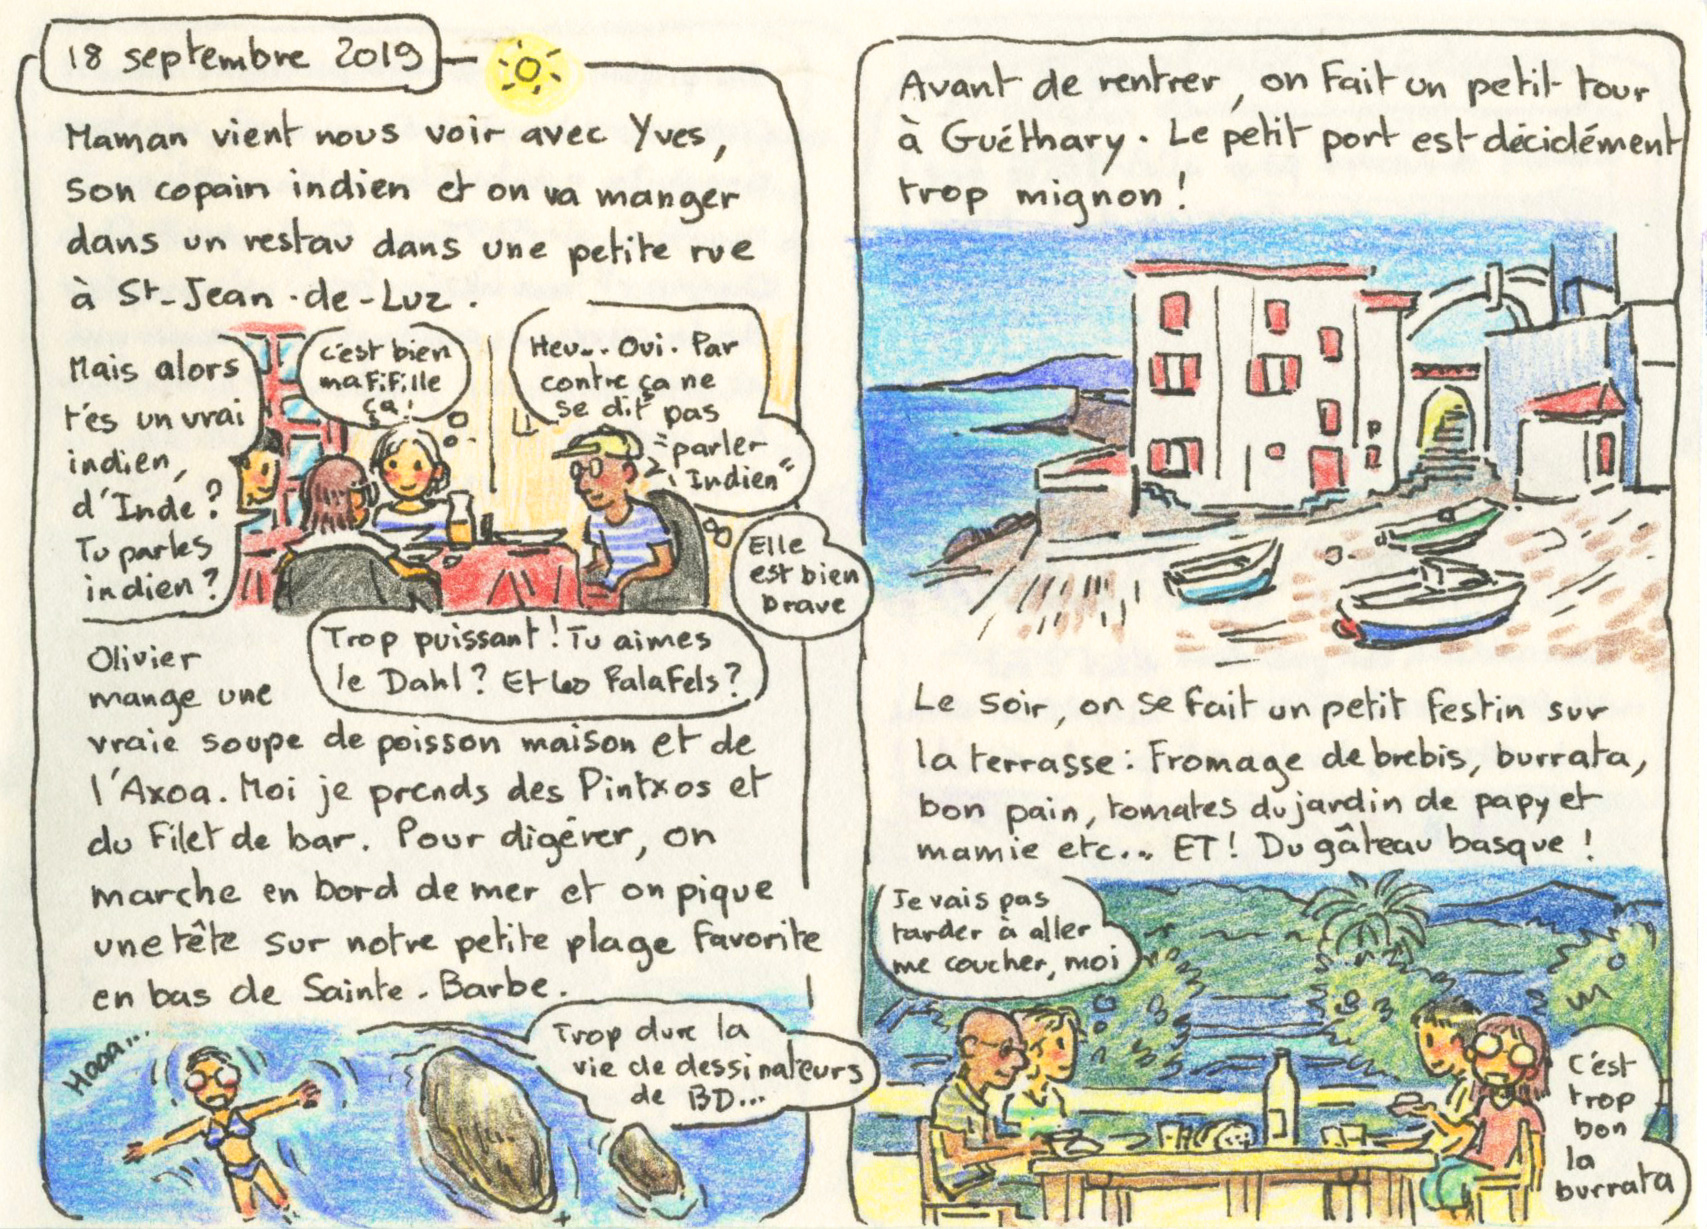 18 septembre 2019
Maman vient nous voir avec Yves,
son copain indien et on va manger
dans un restau dans une petite rue
à St-Jean-de-Luz.
Mais alors
t'es un vrai
indien,
d'Inde?
Tu parles
indien?
C'est bien
ma fifille
ça!
Heu... Oui. Par
contre ça ne
se dit pas
"parler
Indien"
Elle
est bien
brave
Trop puissant! Tu aimes
le Dahl? Et les Falafels?
Olivier
mange une
vraie soupe de poisson maison et de
l'Axoa. Moi je prends des Pintxos et
du filet de bar. Pour digérer, on
marche en bord de mer et on pique
une tête sur notre petite plage favorite
en bas de Sainte-Barbe.
Haaa...
Trop dure la
vie de dessinateurs
de BD...
Avant de rentrer, on fait un petit tour
à Guéthary. Le petit port est décidément
trop mignon!
Le soir, on se fait un petit festin sur
la terrasse: Fromage de brebis, burrata,
bon pain, tomates du jardin de papy et
mamie etc... ET! Du gâteau basque!
Je vais pas
tarder à aller
me coucher, moi
C'est
trop
bon
la
burrata